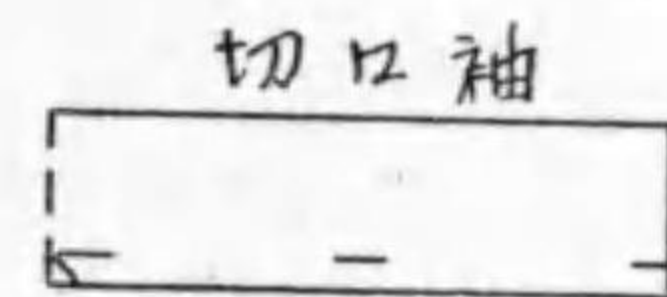 切口袖